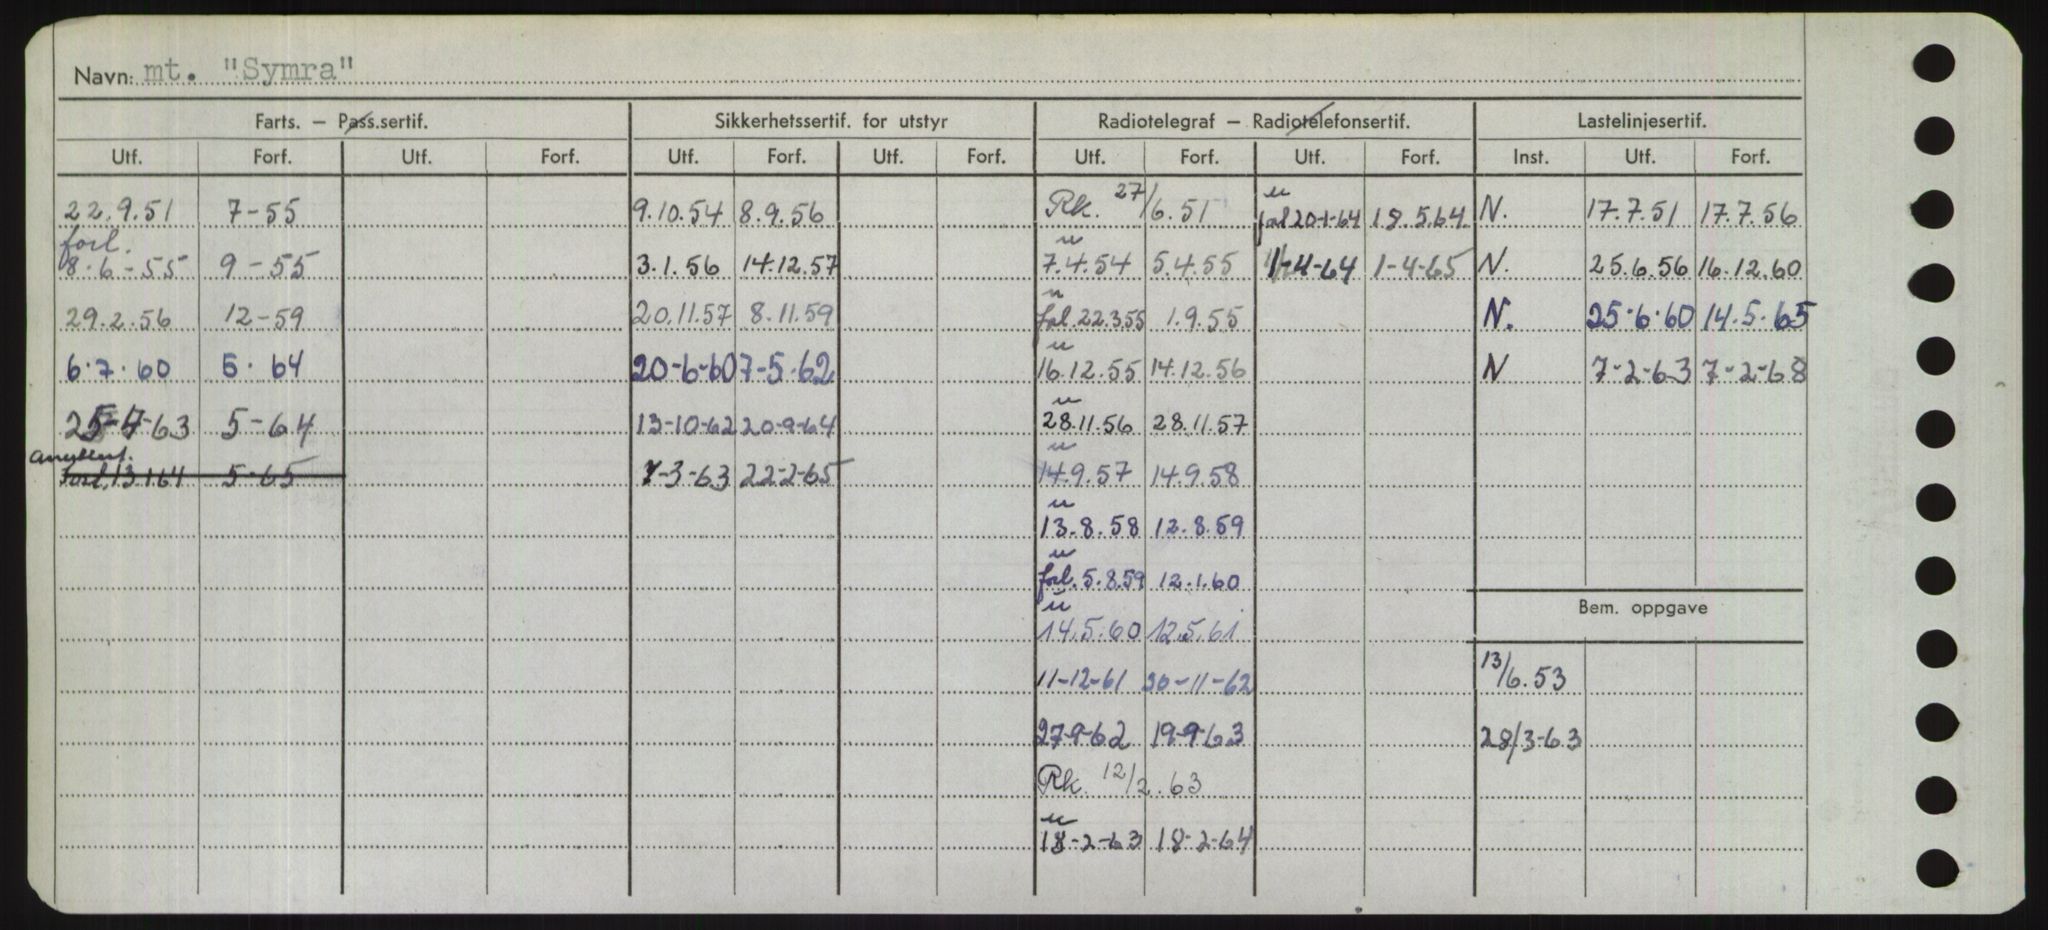 Navn: mt. "Symra"
Farts. — Pass.sertif. Sikkerhetssertif. for utstyr Radiotelegraf — Radiotelefonsertif. Lastelinjesertif.
Utf. Forf. Utf. Forf. Utf. Forf. Utf. Forf. Utf. Forf. Utf. Forf. Inst. Utf. Forf.
22.9.51 7-55 9.10.54 8.9.56 Rk. 27/6.51 u forl 20-1-64 18.5.64. N. 17.7.51 17.7.56
forl. 8-6-55 9-55 3.1.56 14.12.57 u 7.4.54 5.4.55 1-4-64 1-4-65 N. 25.6.56 16.12.60
29.2.56 12-59 20.11.57 8.11.59 u forl. 22.3.55 1.9.55 N. 25.6.60 14.5.65
6.7.60 5.64 20-6-60 7-5-62 u 16.12.55 14.12.56 N 7-2-63 7-2-68
63 5-64 13-10-62 20-9-64 u 28.11.56 28.11.57
Forl. 13 1 64 5-65 -3-63 22-2-65 u 14.9.57 14.9.58
u 13.8.58 12.8.59
u forl. 5.8.59 12.1.60
Bem. oppgave
u 14.5.60 12.5.61
11-12-61 30-11-62 13/6.53
27-9-62 19-9-63 28/3-63
Rk. 12/2.63
u 18-2-63 18-2-64